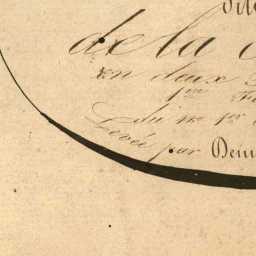 dite
de la
en deux
1ère
du N° 1er
Levée par Demi